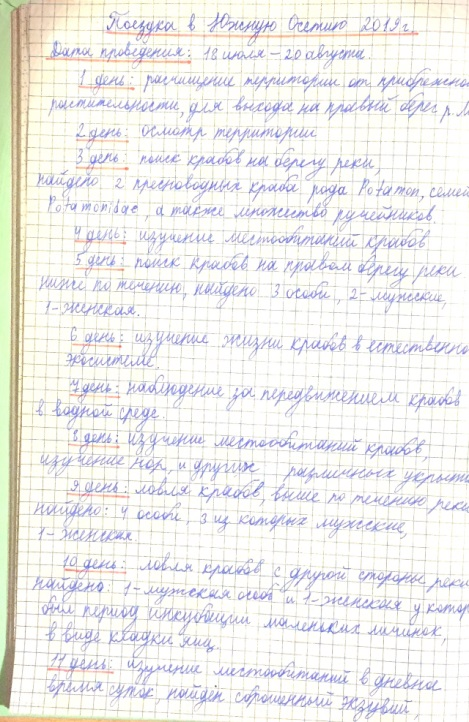 Поездка в Южную Осетию 2019г.
Дата проведения: 18 июля – 20 августа.
1 день: расчищение территории от прибрежно
растительности, для выхода на правый берег р.
2 день: осмотр территории
3 день: поиск крабов на берегу реки,
найдено 2 пресноводных краба рода Potamon, семей
Potamonidae, а также множество ручейников.
4 день: изучение местообитаний крабов
5 день: поиск крабов на правом берегу реки
ниже по течению, найдено 3 особи, 2- мужские,
1-женская.
6 день: изучение жизни крабов в естественно
экосистеме
7 день: наблюдение за передвижением крабов
в водной среде
8 день: изучение местообитаний крабов,
изучение нор, и других различных укрыти
9 день: ловля крабов, выше по течению реки
найдено: 4 особи, 3 из которых мужские,
1-женская
10 день: ловля крабов с другой стороны реки
найдено: 1-мужская особь и 1-женская у котор
был период инкубации маленьких личинок,
в виде кладки яиц.
11 день: изучение местообитаний в дневное
время суток, найден сброшенный экзувий,